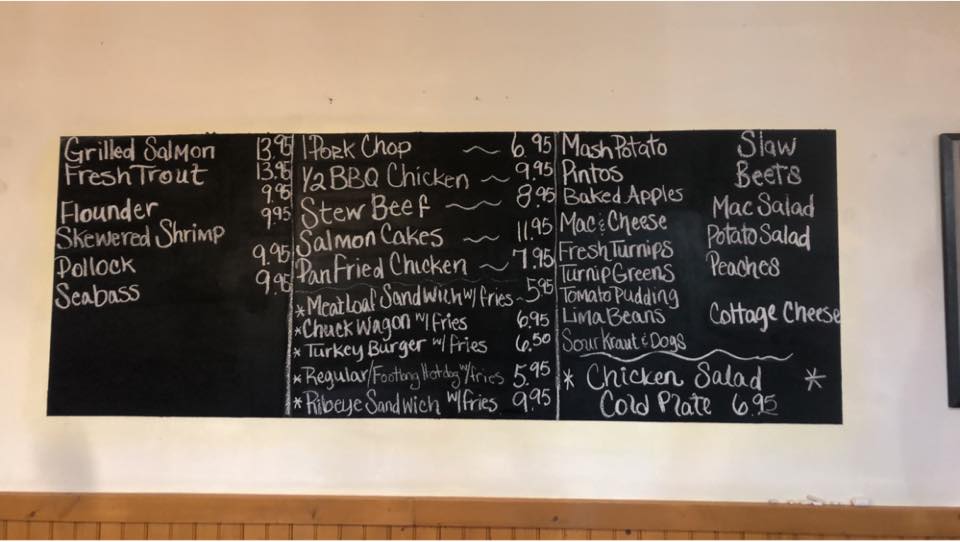 Grilled Salmon 13.95
Fresh Trout 13.95
Flounder 9.95
Skewered Shrimp 9.95
Pollock 9.95
Seabass 9.95
1 Pork Chop ~ 6.95
1/2 BBQ Chicken ~ 9.95
Stew Beef ~ 8.95
Salmon Cakes ~ 11.95
Pan Fried Chicken ~ 7.95
* Meatloaf Sandwich w/ fries - 5.95
* Chuck Wagon w/ fries 6.95
* Turkey Burger w/ fries 6.50
* Regular/Footlong Hotdog w/ fries 5.95
* Ribeye Sandwich w/ fries 9.95
Mash Potato
Pintos
Baked Apples
Mac & Cheese
Fresh Turnips
Turnip Greens
Tomato Pudding
Lima Beans
Sour Kraut & Dogs
Slaw
Beets
Mac Salad
Potato Salad
Peaches
Cottage Cheese
* Chicken Salad *
Cold Plate 6.95